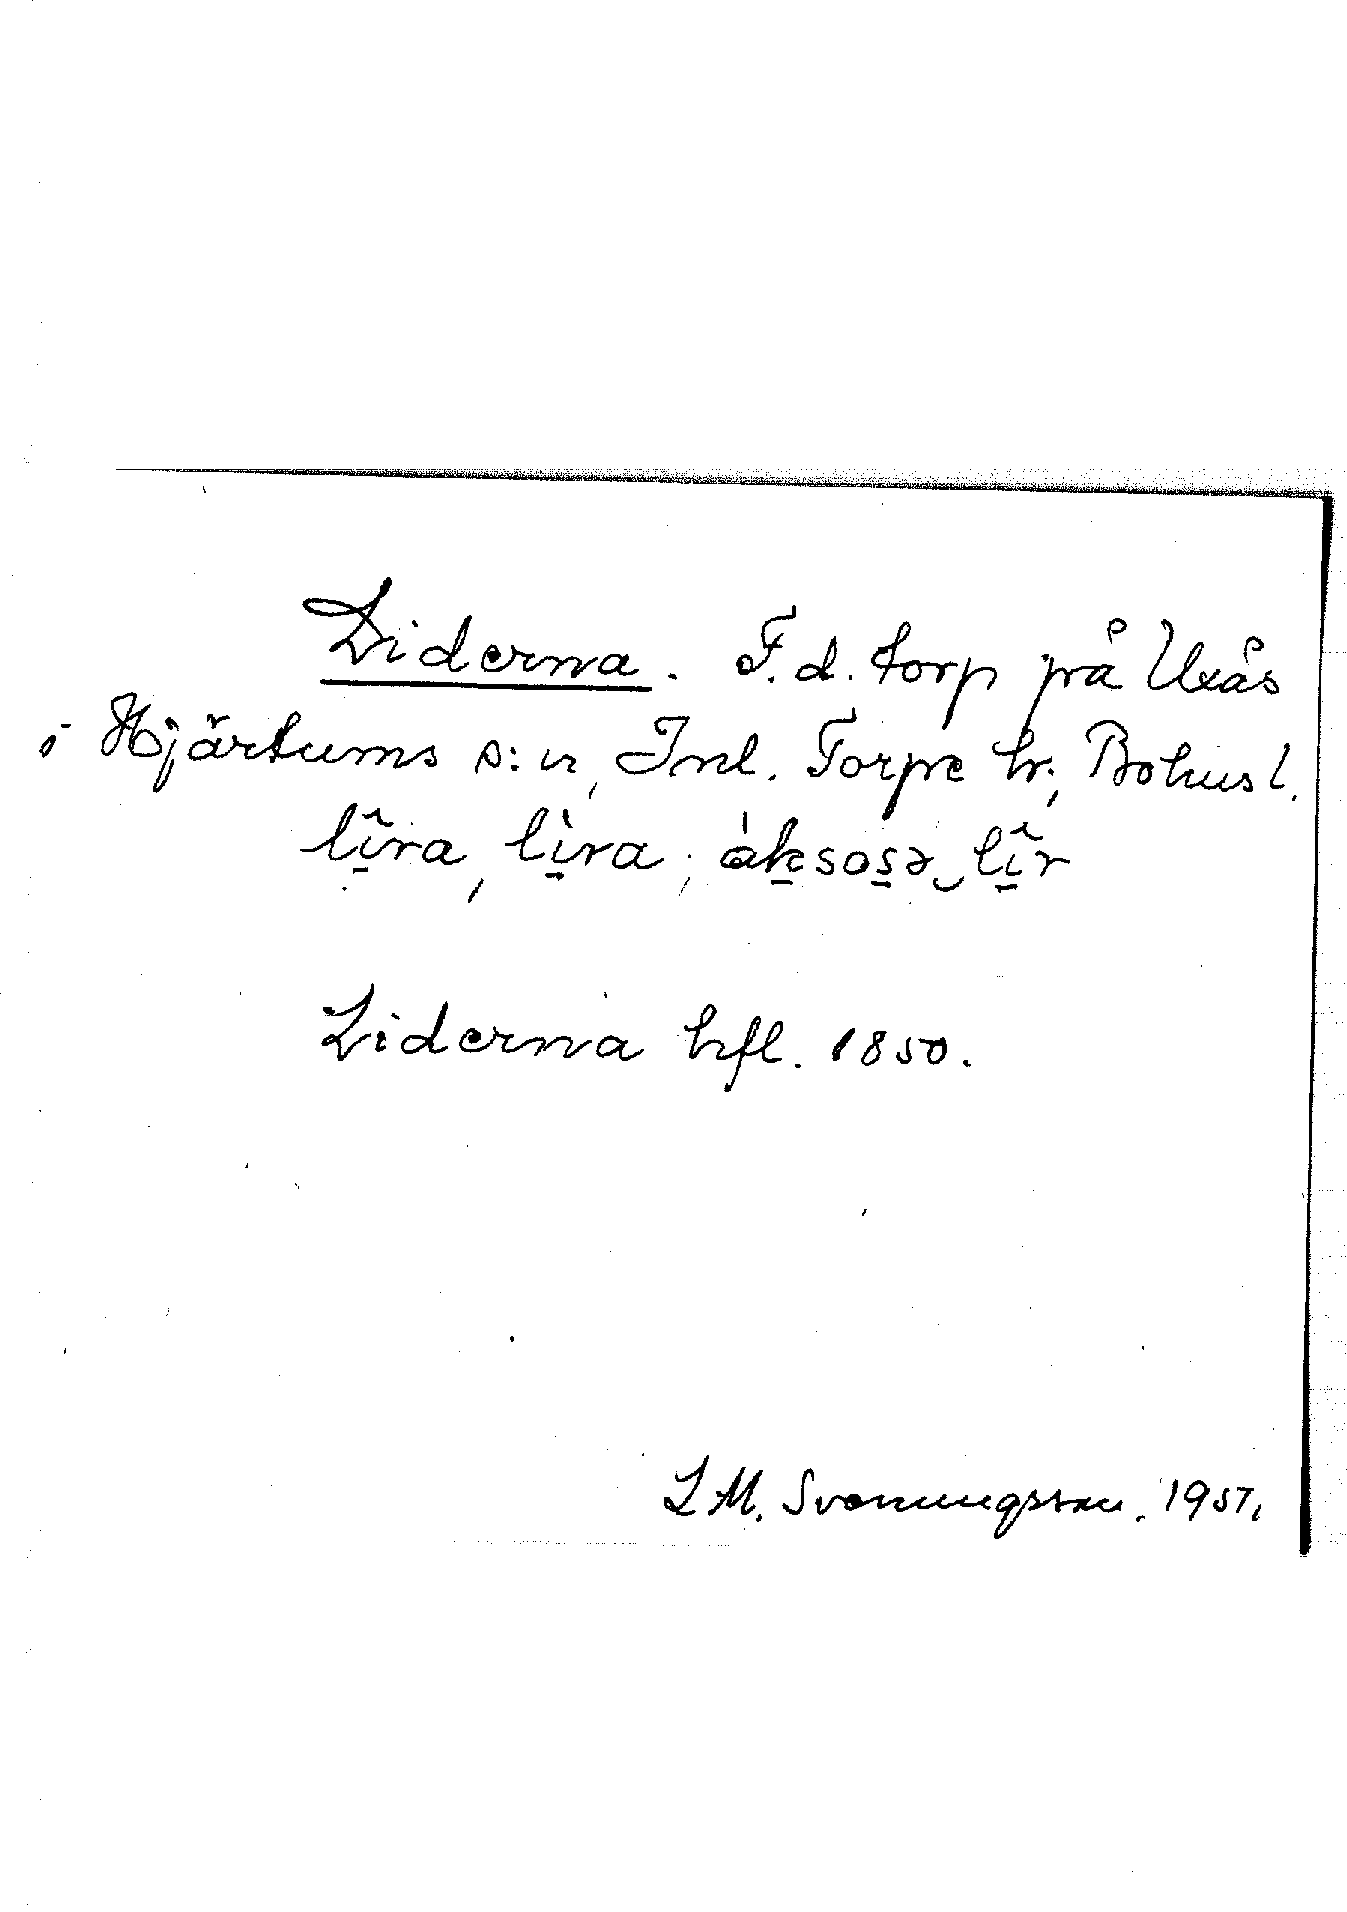 Liderna. F.d. torp på Uxås
i Hjärtums s:n, Inl. Torpe hr, Bohusl.
lî̱ra, lì̱ra; áḵsos̱ə‿lî̱r
Liderna hfl. 1850.
L M. Svenungsson. 1957.